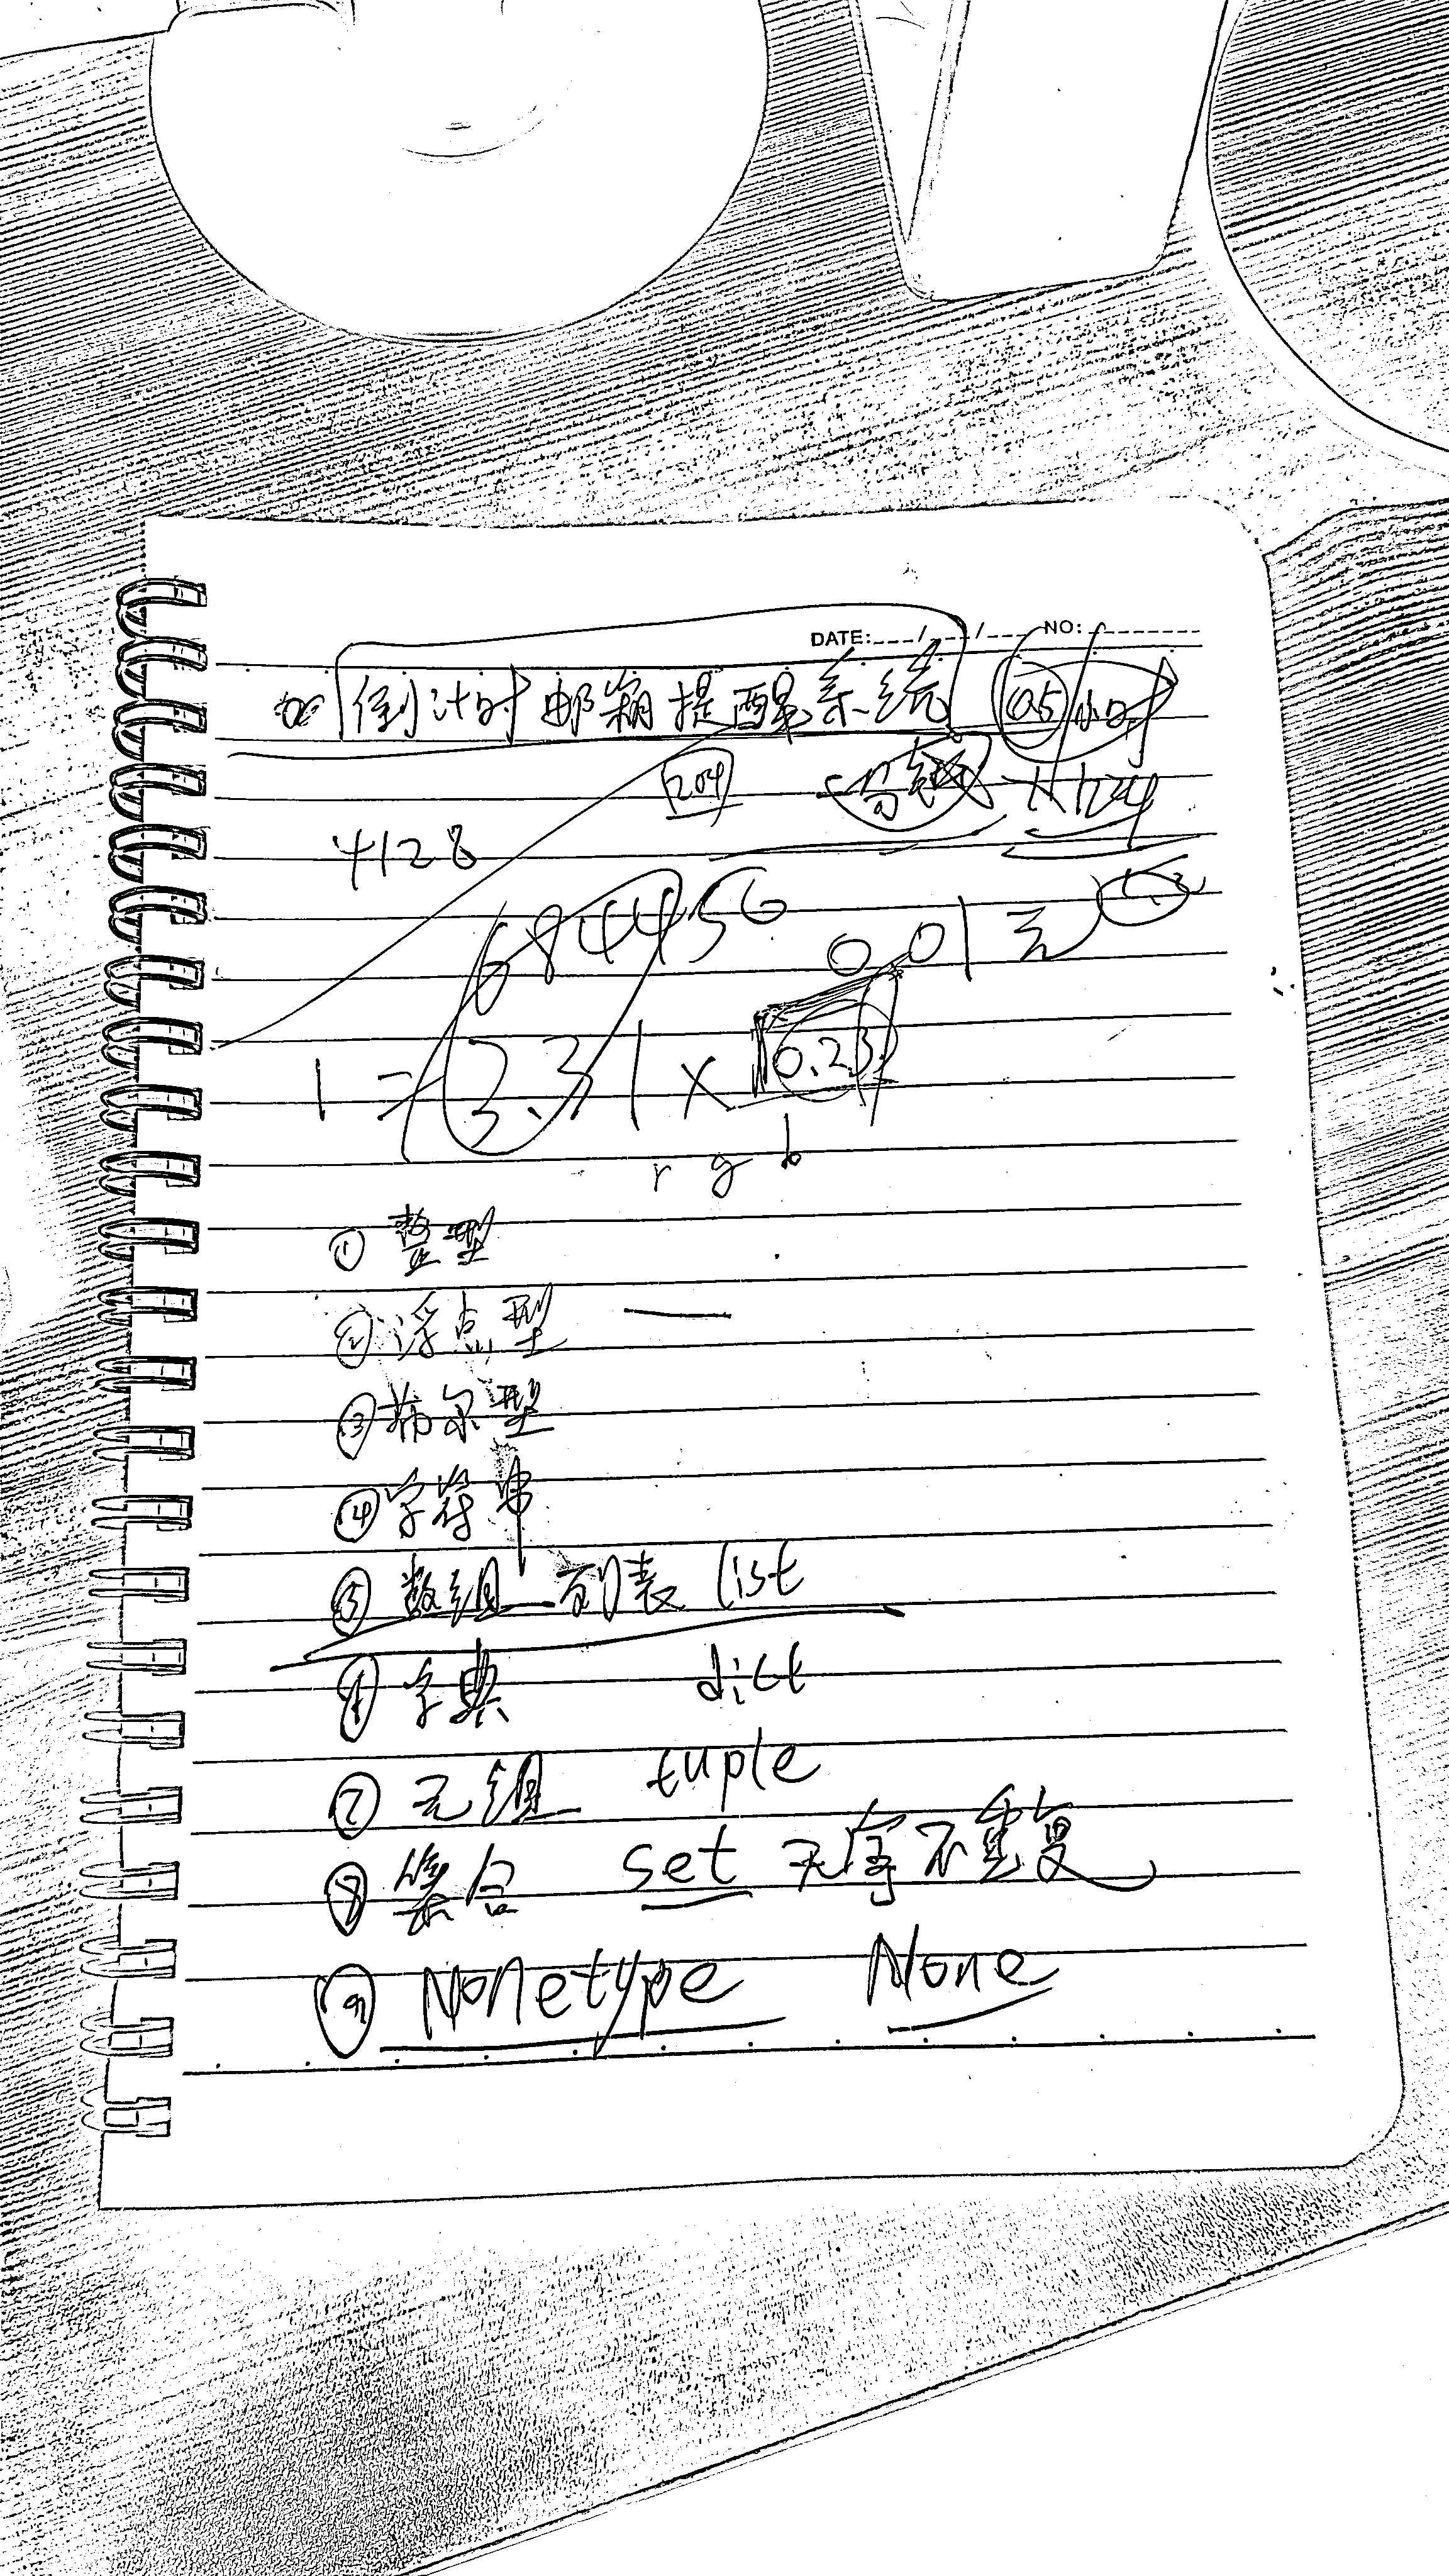 DATE: / / NO:
倒计时邮箱提醒系统 0.5小时
204
4128
684456
0.01元
1 = 2.31 × 0.23
r g b
① 整型
② 浮点型 —
③ 布尔型
④ 字符串
⑤ 数组—列表 list
字典 dict
⑦ 元组 tuple
⑧ 集合 set 无序不重复
⑨ Nonetype None